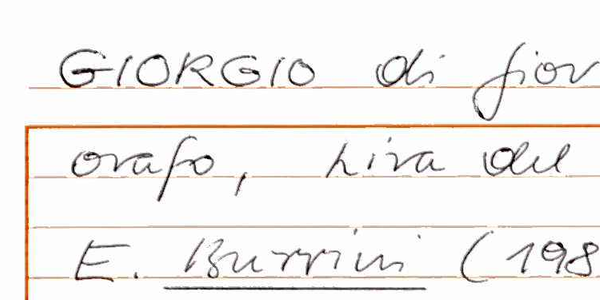 GIORGIO di Giov
orafo, lira del
E. Burrini (198